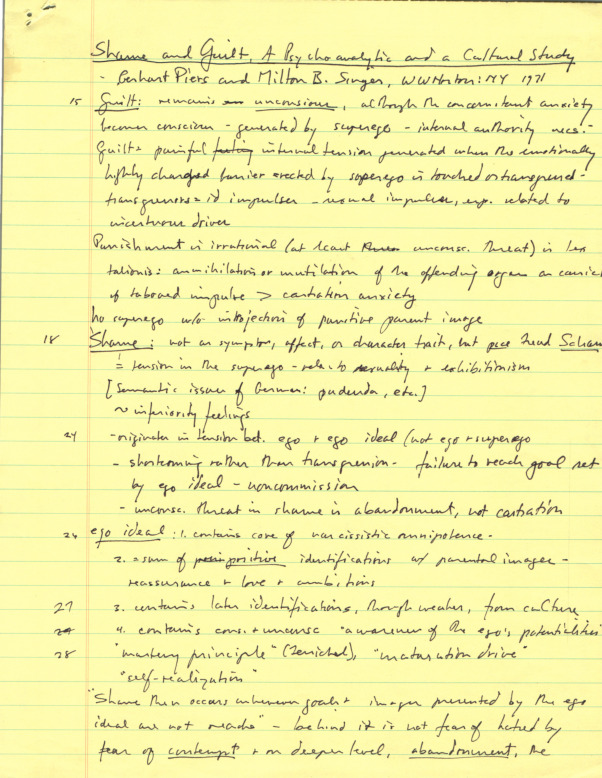 Shame and Guilt, A Psychoanalytic and a Cultural Study
- Gerhart Piers and Milton B. Singer, WW Norton: NY 1971
15 Guilt: remains unconscious, although the concomitant anxiety
becomes conscious - generated by superego - internal authority nec. -
Guilt = painful feeling internal tension generated when the emotionally
highly charged barrier erected by superego is touched or transgressed -
transgressors = id impulses - sexual impulses, esp. related to
incestuous drives
Punishment is irrational (at least unconsc. threat) is lex
talionis: annihilation or mutilation of the offending organ or carrier
of tabooed impulse > castration anxiety
no superego w/o introjection of punitive parent image
18 Shame: not a symptom, affect, or character trait, but pace Freud Scham
= tension in the superego - relat. to sexuality + exhibitionism
[Semantic issue of German: pudenda, etc.]
~ inferiority feelings
24 - originates in tension bet. ego + ego ideal (not ego + superego
- shortcoming rather than transgression - failure to reach goal set
by ego ideal - noncommission
- unconsc. threat in shame is abandonment, not castration
26 ego ideal: 1. contains core of narcissistic omnipotence.
2. = sum of positive identifications w/ parental images -
reassurance + love + ambitions
27 3. contains later identifications, though weaker, from culture
4. contains cons. + unconsc "awareness of the ego's potentialities
28 "mastery principle" (Fenichel), "maturation drive"
"self-realization"
"Shame then occurs whenever goals + images presented by the ego
ideal are not reached" - behind it is not fear of hatred by
fear of contempt + on deeper level, abandonment, the